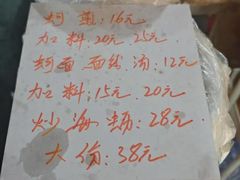 蚵煎:16元
加料:20元 25元
蚵面 面线 汤:12元
加料:15元.20元
炒海蛎:28元
大份:38元